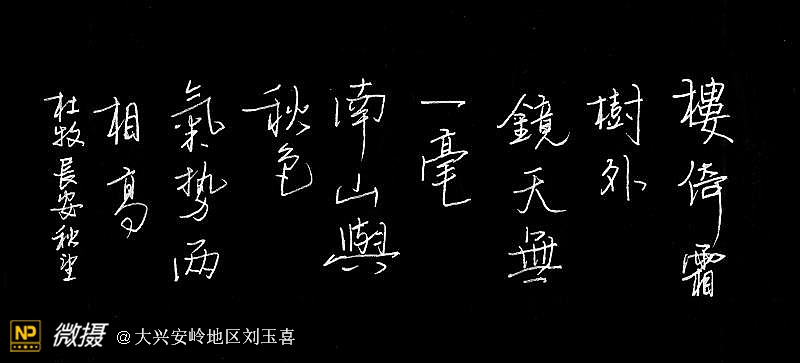 樓倚霜
樹外
鏡天無
一毫
南山與
秋色
氣勢兩
相高
杜牧長安秋望
NP 微摄 @大兴安岭地区刘玉喜